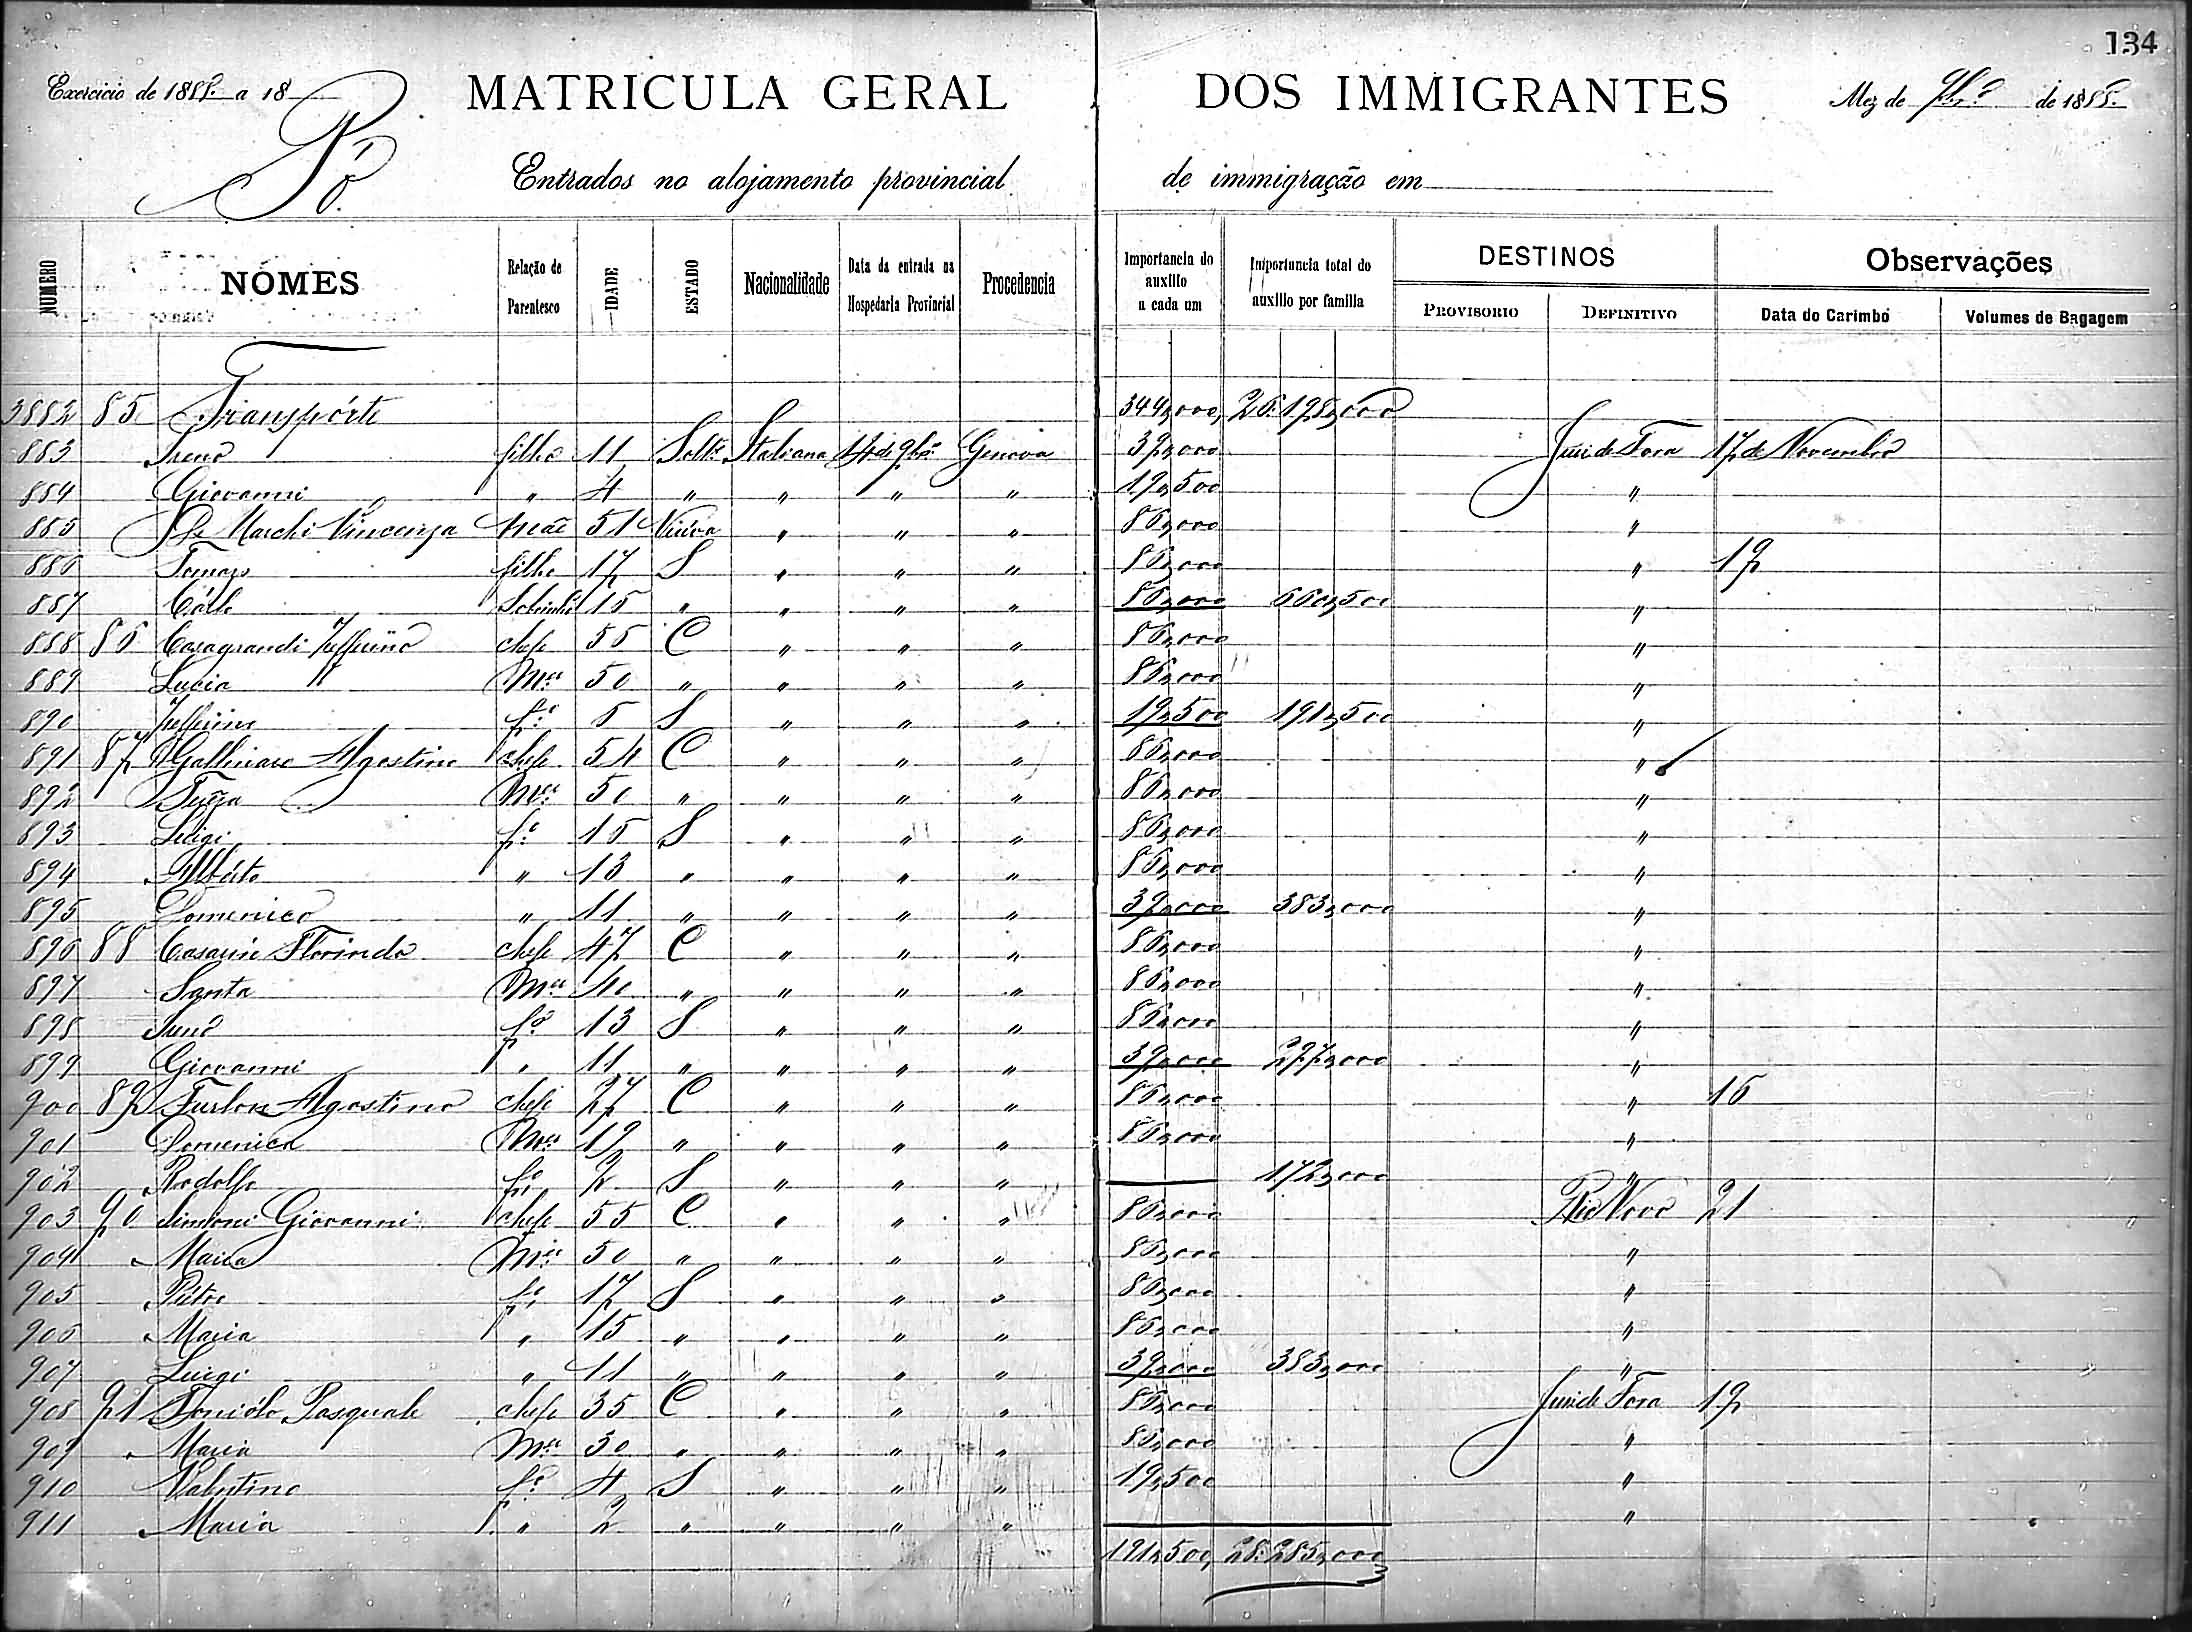 134
Exercicio de 1888 a 18
MATRICULA GERAL DOS IMMIGRANTES
Mez de 9br.o de 1888
Pó
Entrados no alojamento provincial de immigração em
NUMERO NOMES Relação de Parentesco IDADE ESTADO Nacionalidade Data da entrada na Hospedaria Provincial Procedencia Importancia do auxilio a cada um Importancia total do auxilio por familia DESTINOS PROVISORIO DEFINITIVO Observações Data do Carimbo Volumes de Bagagem
3882 85 Transpórte 344,000
883 filho 11 Solt.o Italiana 14 de 9br.o Genova 39,000 Juiz de Fora 17 de Novembro
884 Giovanni " 4 " " " " 19,500 "
885 De Marchi Vincenza mãe 51 Viúva " " " 86,000 "
886 Tomaso filho 17 S " " " 86,000 " 19
887 15 " " " " 86,000 660,500 "
888 86 Casagrandi chefe 55 C " " " 86,000 "
889 Lucia M.er 50 " " " " 86,000 "
890 f.o 5 S " " " 19,500 191,500 "
891 87 Agostino chefe 54 C " " " 86,000 "
892 M.er 50 " " " " 86,000 "
893 Luigi f.o 15 S " " " 86,000 "
894 Alberto " 13 " " " " 86,000 "
895 Domenico " 11 " " " " 39,000 383,000 "
896 88 Casarin Florindo chefe 47 C " " " 86,000 "
897 Santa M.er 40 " " " " 86,000 "
898 f.o 13 S " " " 86,000 "
899 Giovanni " 11 " " " " 39,000 297,000 "
900 89 Furlan Agostino chefe 27 C " " " 86,000 " 16
901 Domenica M.er 19 " " " " 86,000 "
902 Rodolfo f.o 2 S " " " 172,000 "
903 90 Simioni Giovanni chefe 55 C " " " 86,000 Rio Novo 21
904 Maria M.er 50 " " " " 86,000 "
905 Pietro f.o 17 S " " " 86,000 "
906 Maria " 15 " " " " 86,000 "
907 Luigi " 11 " " " " 39,000 383,000 "
908 91 Toniólo Pasquale chefe 35 C " " " 86,000 Juiz de Fora 19
909 Maria M.er 30 " " " " 86,000 "
910 Valentino f.o 4 S " " " 19,500 "
911 Maria " 2 " " " " "
191,500 28:285,000